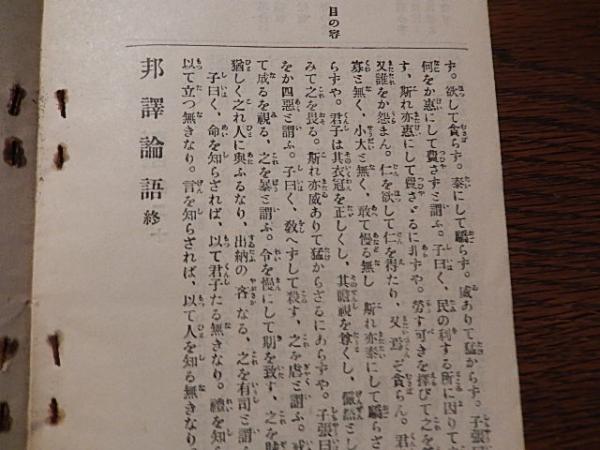 目の容
す。欲して貪らず。泰にして驕らず。威ありて猛からず。子張曰
何をか惠にして費さずと謂ふ。子曰く、民の利する所に因りて
す、斯れ亦惠にして費さゞるに非すや。勞す可きを擇びて之を
又誰をか怨まん。仁を欲して仁を得たり、又焉ぞ貪らん。君
寡と無く、小大と無く、敢て慢る無し 斯れ亦泰にして驕らざ
らすや。君子は其衣冠を正しくし、其瞻視を尊くし、儼然とし
みて之を畏る。斯れ亦威ありて猛からざるにあらずや。子張曰
をか四惡と謂ふ。子曰く、敎へずして殺す、之を虐と謂ふ。戒
て成るを視る、之を暴と謂ふ。令を慢にして期を致す、之を賊
猶しく之れ人に與ふるなり、出納の吝なる、之を有司と謂ふ
子曰く、命を知らざれば、以て君子たる無きなり。禮を知ら
以て立つ無きなり。言を知らざれば、以て人を知る無きなり。
邦譯論語 終